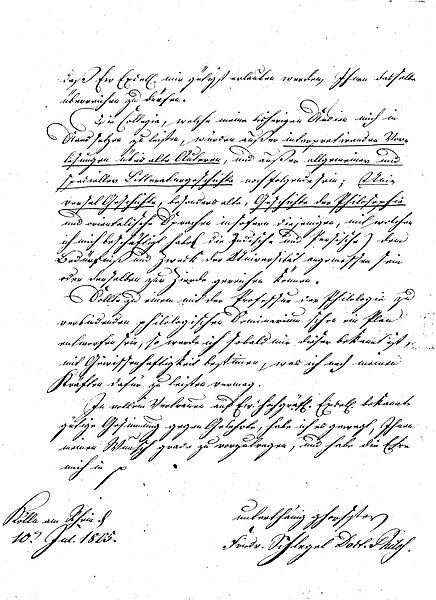 daß Ew Excell. mir gütigst erlauben werden, Ihnen dasselbe
überreichen zu dürfen.
Die Collegia, welche meine bisherigen Studien mich in
Stand setzen zu leisten, würden außer interpretirenden Vor-
lesungen über alte Autoren, und außer allgemeiner und
specieller Litteraturgeschichte noch folgende sein; Uni-
versal Geschichte, besonders alte, Geschichte der Philosophie
und orientalische Sprachen insofern diejenigen, mit welchen
ich mich beschäftigt habe (die Indische und Persische) dem
Bedürfniß und Zweck der Universität angemessen sein
oder derselben zur Zierde gereichen können.
Sollte zu einem mit der Professur der Philologie zu
verbindenden philologischen Seminarium schon ein Plan
entworfen sein, so werde ich sobald mir dieser bekannt ist,
mit Gewissenhaftigkeit bestimmen, was ich nach meinen
Kräften dafür zu leisten vermag.
In vollem Vertrauen auf Ew. Hochgräfl. Excell. bekannte
gütige Gesinnung gegen Gelehrte, habe ich es gewagt, Ihnen
meinen Wunsch grade so vorzutragen, und habe die Ehre
mich in
Kölln am Rhein d
10t Jul. 1805.
unterthänig gehorsamster
Friedr. Schlegel Doct. d Philos.